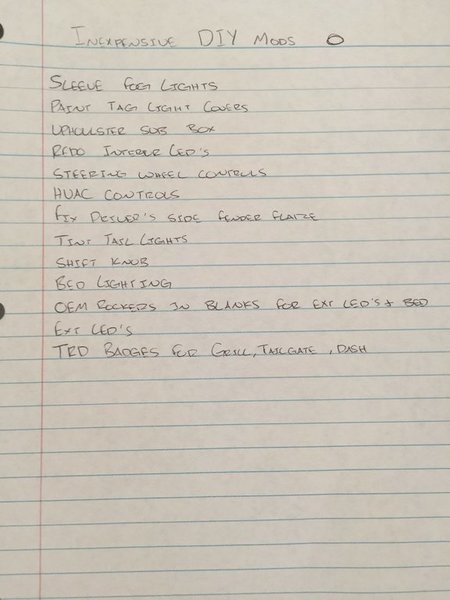 INEXPENSIVE DIY MODS O
SLEEVE FOG LIGHTS
PAINT TAG LIGHT COVERS
UPHOLSTER SUB BOX
REDO INTERIOR LED'S
STEERING WHEEL CONTROLS
HVAC CONTROLS
FIX DRIVER'S SIDE FENDER FLARE
TINT TAIL LIGHTS
SHIFT KNOB
BED LIGHTING
OEM ROCKERS IN BLANKS FOR EXT LED'S + BED
EXT LED'S
TRD BADGES FOR GRILL, TAILGATE, DASH